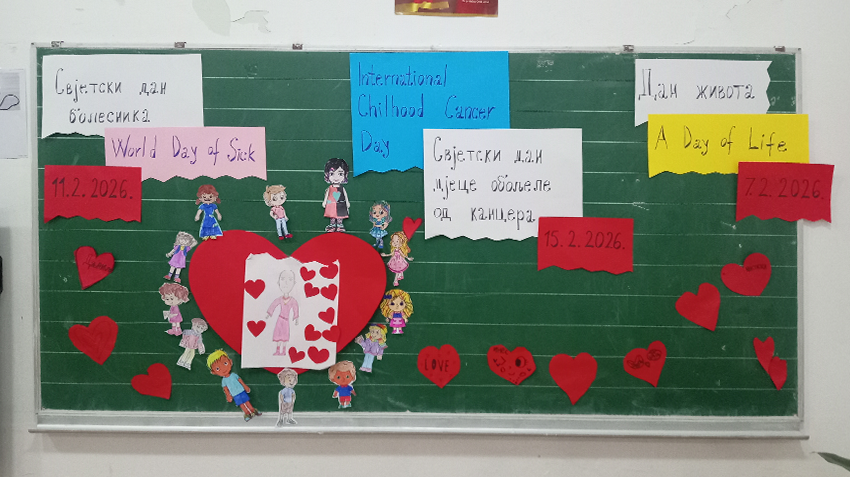 Свјетски дан
болесника
World Day of Sick
11.2.2026.
International
Chilhood Cancer
Day
Свјетски дан
мјеце обољеле
од канцера
15.2.2026.
Дан живота
A Day of Life
7.2.2026.
LOVE